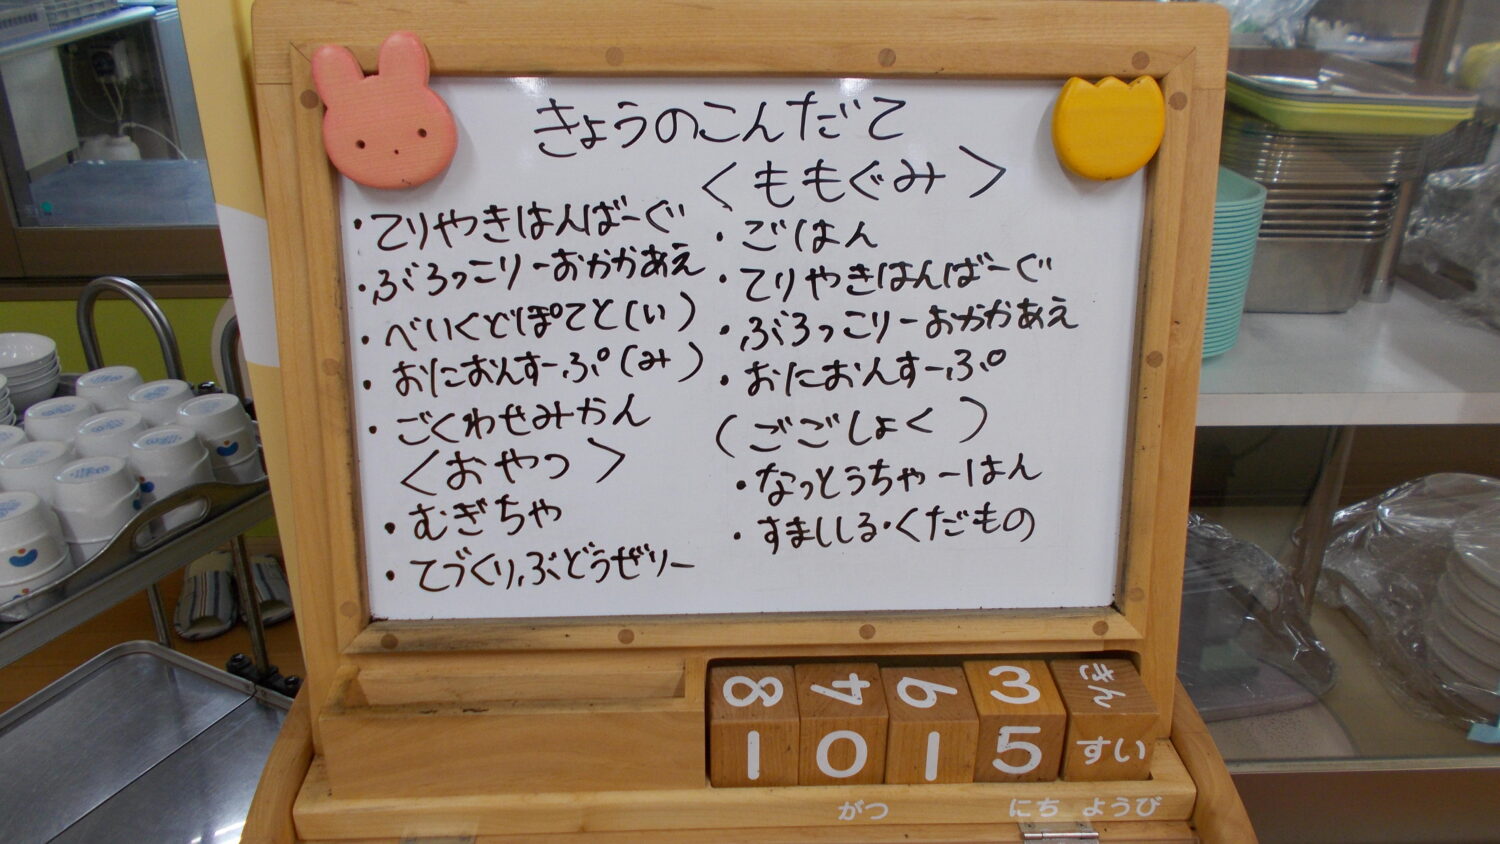 きょうのこんだて
・てりやきはんばーぐ
・ぶろっこりーおかかあえ
・べいくどぽてと(い)
・おにおんすーぷ(み)
・ごくわせみかん
＜おやつ＞
・むぎちゃ
・てづくりぶどうぜりー
＜ももぐみ＞
・ごはん
・てりやきはんばーぐ
・ぶろっこりーおかかあえ
・おにおんすーぷ
(ごごしょく)
・なっとうちゃーはん
・すましじる・くだもの
8 4 9 3 きん
1 0 1 5 すい
がつ にち ようび